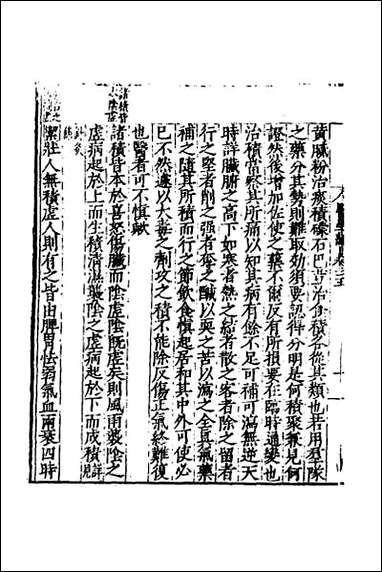 黃膩粉治痰積礞石巴豆治食積各從其類也若用羣隊
之藥分其勢則難取効須要認得分明是何積聚兼見何
證然後增加佐使之藥不爾反有所損要在臨時通變也
治積當察其所痛以知其病有餘不足可補可瀉無逆天
時詳臟腑之高下如寒者熱之結者散之客者除之留者
行之堅者削之強者奪之鹹以耎之苦以瀉之全真氣藥
補之隨其所積而行之節飲食慎起居和其中外可使必
已不然遽以大毒之劑攻之積不能除反傷正氣終難復
也醫者可不慎歟
諸積皆本於喜怒傷臟而陰虛陰既虛矣則風雨襲陰之
虛病起於上而生積清濕襲陰之虛病起於下而成積詳見
針灸
潔壯人無積虛人則有之皆由脾胃怯弱氣血兩衰四時